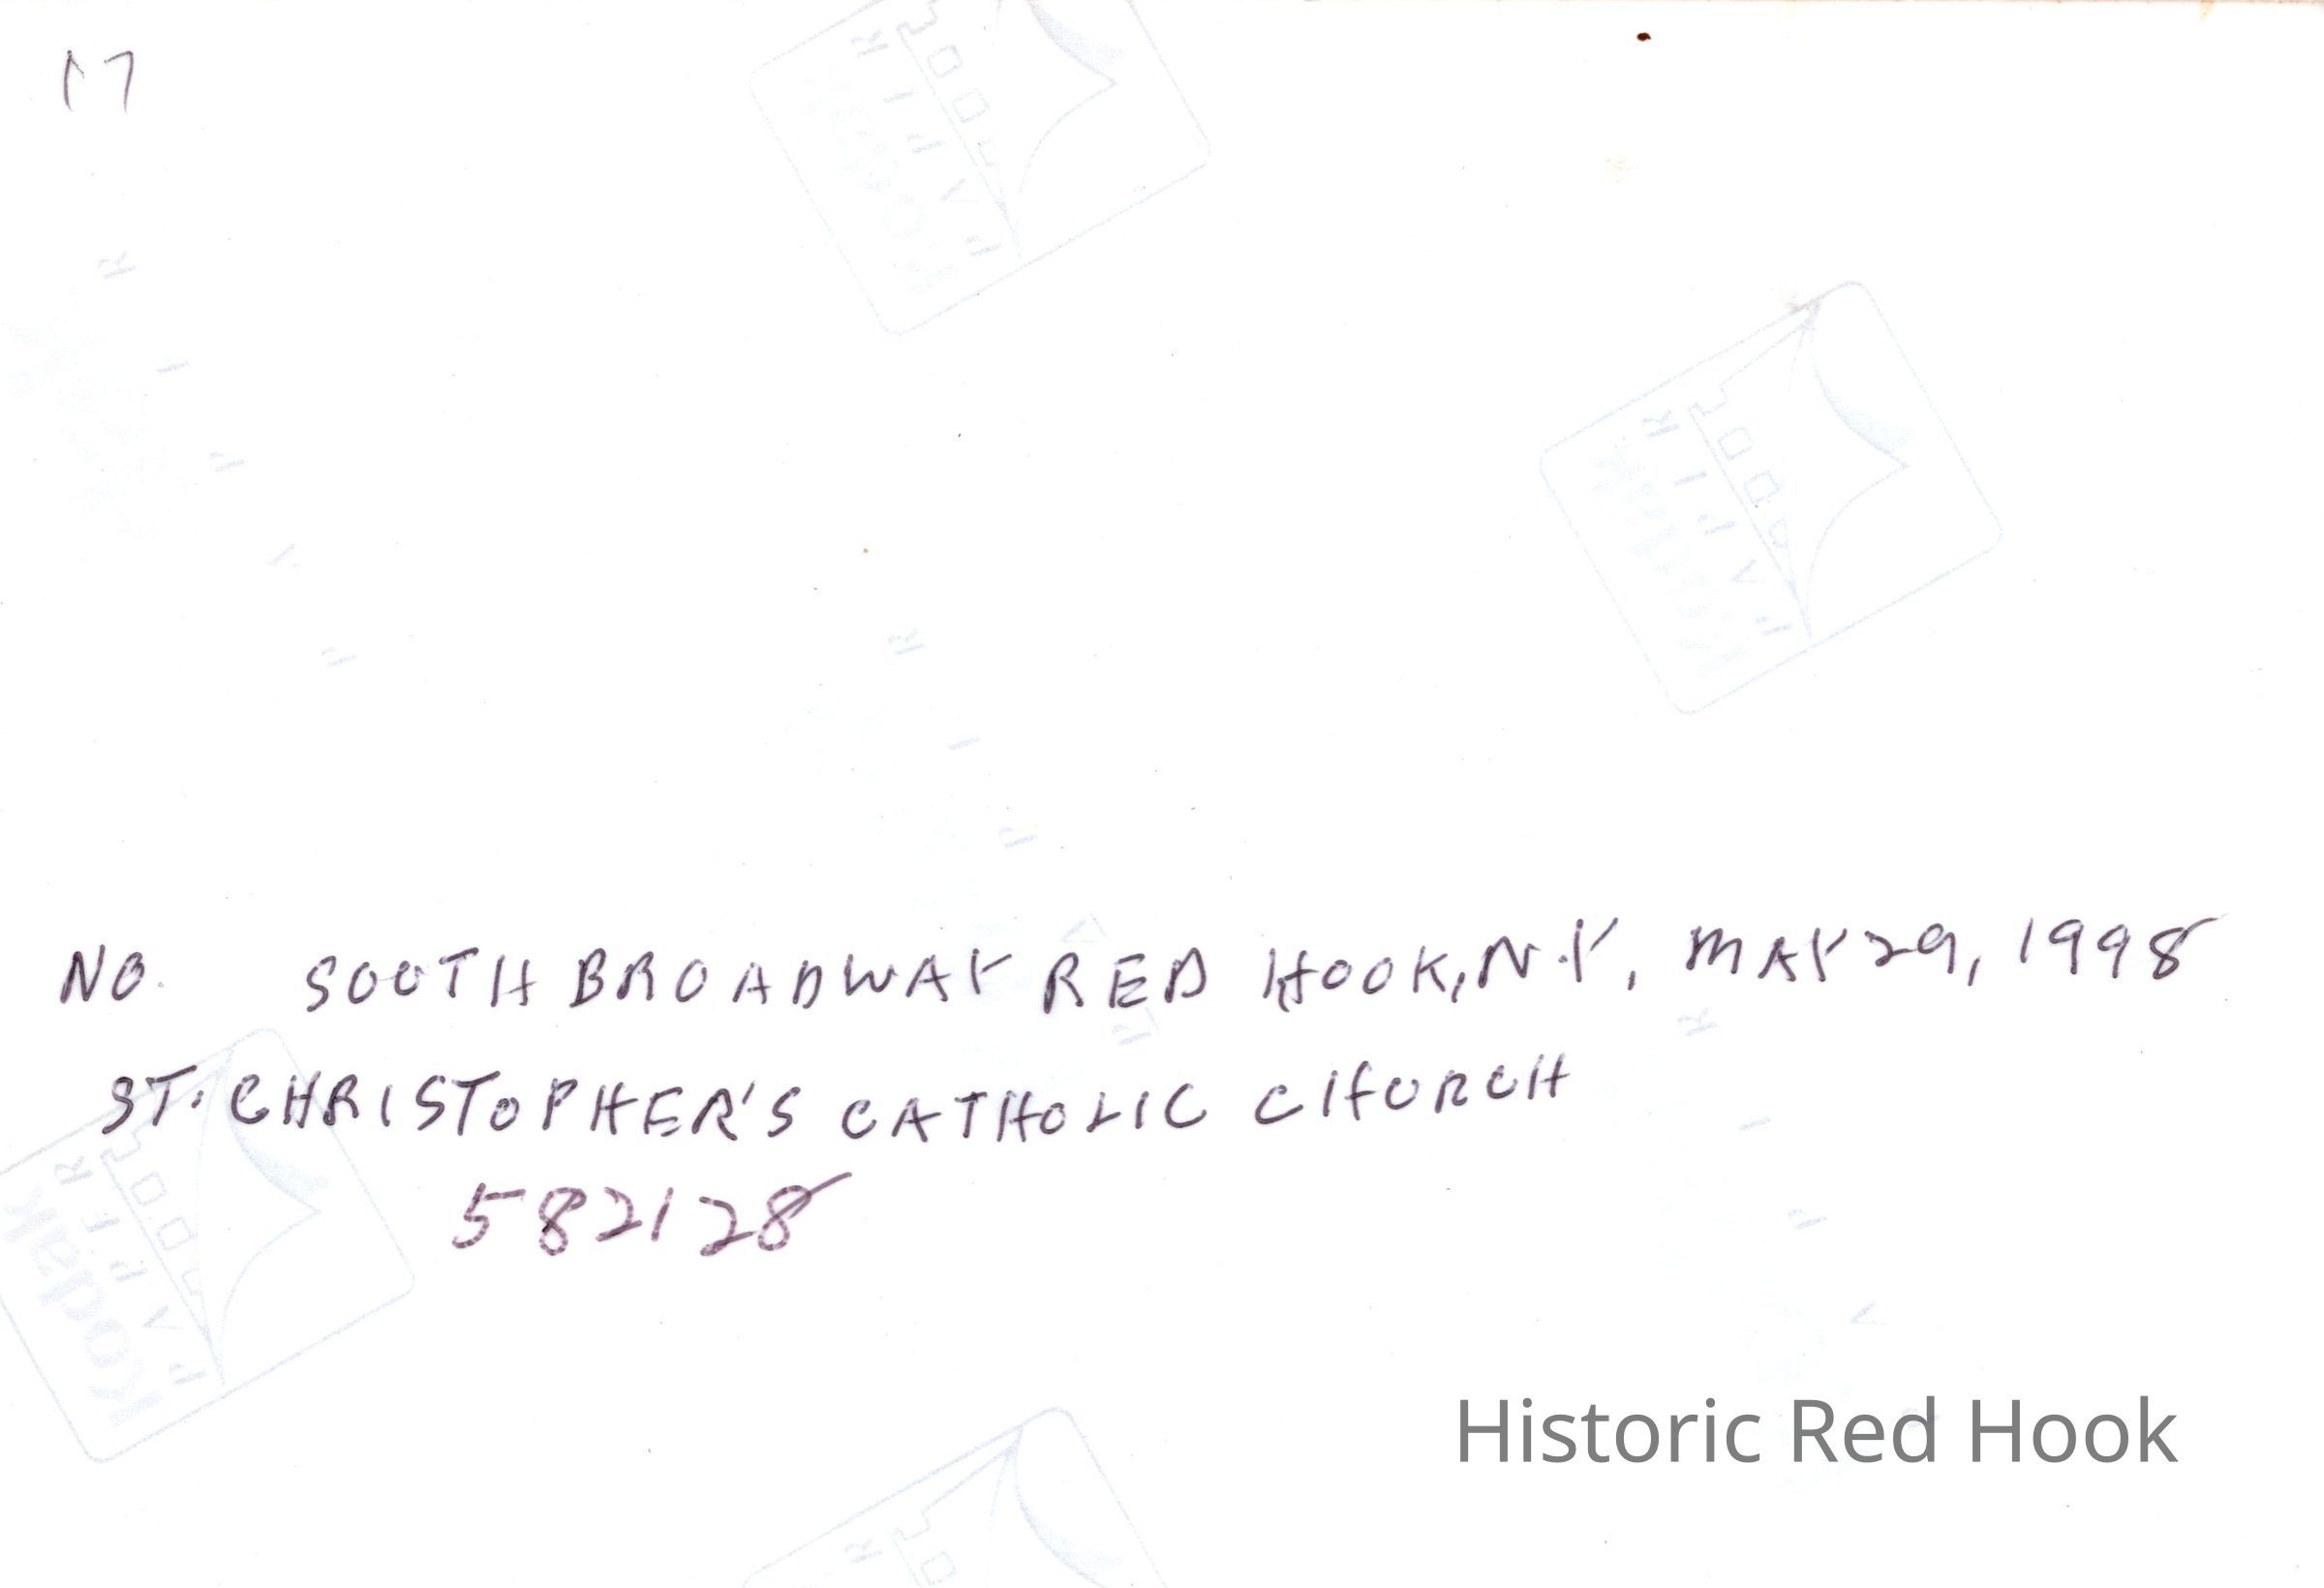 17
NO. SOUTH BROADWAY RED HOOK, N.Y, MAY 29, 1998
ST. CHRISTOPHER'S CATHOLIC CHURCH
582128
Kodak
PAPIER
Historic Red Hook